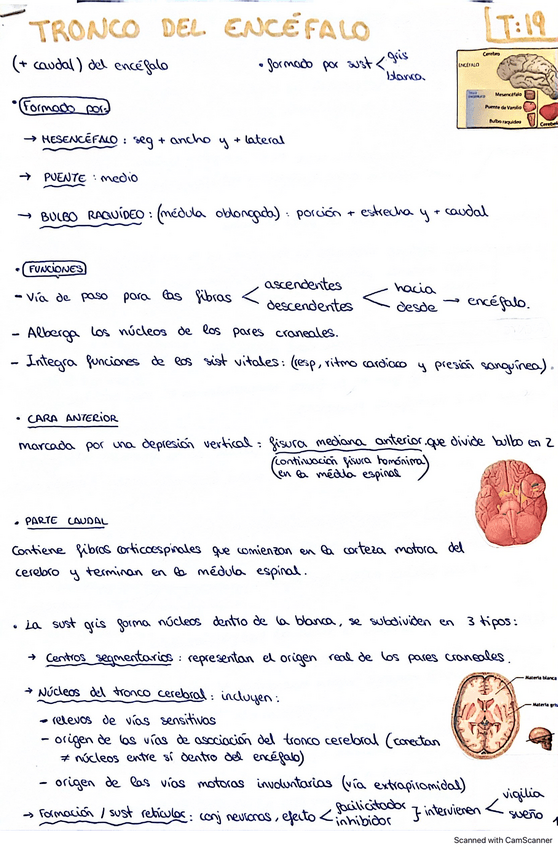 TRONCO DEL ENCÉFALO
T:19
(+ caudal) del encéfalo
• formado por sust < gris
blanca
Cerebro
ENCÉFALO
Mesencéfalo
Puente de Varolio
Bulbo raquídeo
Cerebelo
• Formado por:
→ MESENCÉFALO : seg + ancho y + lateral
→ PUENTE : medio
→ BULBO RAQUÍDEO : (médula oblongada) : porción + estrecha y + caudal
• FUNCIONES
- Vía de paso para las fibras < ascendentes
descendentes < hacia
desde → encéfalo.
- Alberga los núcleos de los pares craneales.
- Integra funciones de los sist vitales : (resp, ritmo cardiaco y presión sanguínea).
• CARA ANTERIOR
marcada por una depresión vertical : fisura mediana anterior que divide bulbo en 2
(continuación fisura homónima)
en la médula espinal
• PARTE CAUDAL
Contiene fibras corticoespinales que comienzan en la corteza motora del
cerebro y terminan en la médula espinal.
• La sust gris forma núcleos dentro de la blanca, se subdividen en 3 tipos:
→ Centros segmentarios : representan el origen real de los pares craneales.
→ Núcleos del tronco cerebral : incluyen :
- relevos de vías sensitivas
- origen de las vías de asociación del tronco cerebral (conectan
≠ núcleos entre sí dentro del encéfalo)
- origen de las vías motoras involuntarias (vía extrapiramidal)
Materia blanca
Materia gris
→ Formación / sust reticular : conj neuronas, efecto < facilicitador
inhibidor } intervienen < vigilia
sueño
Scanned with CamScanner